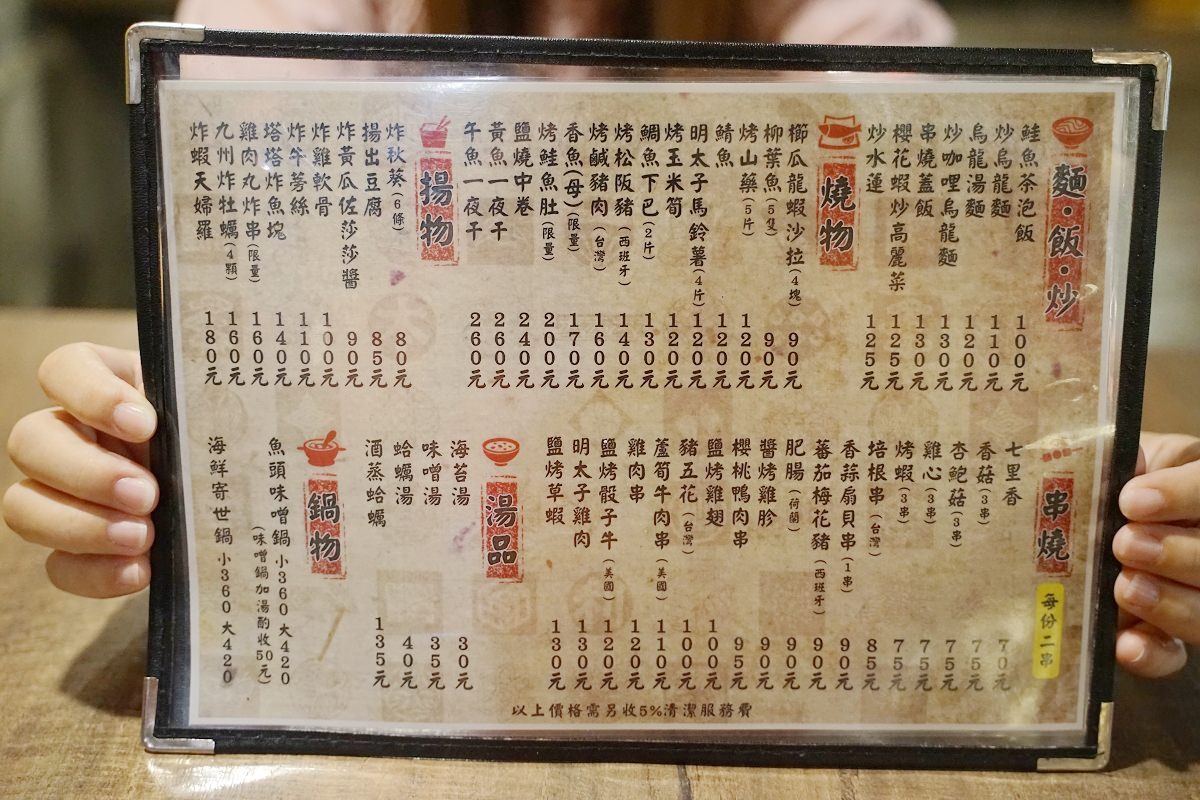 麵・飯・炒
鮭魚茶泡飯 100元
炒烏龍麵 110元
烏龍湯麵 120元
炒咖哩烏龍麵 130元
串燒蓋飯 130元
櫻花蝦炒高麗菜 125元
炒水蓮 125元
燒物
櫛瓜龍蝦沙拉(4塊) 90元
柳葉魚(5隻) 90元
烤山藥(5片) 120元
鯖魚 120元
明太子馬鈴薯(4斤) 120元
烤玉米筍 120元
鯛魚下巴(2片) 130元
烤松阪豬(西班牙) 140元
烤鹹豬肉(台灣) 160元
香魚(母)(限量) 170元
烤鮭魚肚(限量) 200元
鹽燒中卷 240元
黃魚一夜干 260元
午魚一夜干 260元
揚物
炸秋葵(6條) 80元
揚出豆腐 85元
炸黃瓜佐莎莎醬 90元
炸雞軟骨 100元
炸牛蒡絲 110元
塔塔炸魚塊 140元
雞肉丸炸串(限量) 160元
九州炸牡蠣(4顆) 160元
炸蝦天婦羅 180元
串燒
每份二串
七里香 70元
香菇(3串) 75元
杏鮑菇(3串) 75元
雞心(3串) 75元
烤蝦(3串) 75元
培根串(台灣) 85元
香蒜扇貝串(1串) 90元
蕃茄梅花豬(西班牙) 90元
肥腸(荷蘭) 90元
醬烤雞胗 90元
櫻桃鴨肉串 95元
鹽烤雞翅 100元
豬五花(台灣) 100元
蘆筍牛肉串(美國) 110元
雞肉串 120元
鹽烤骰子牛(美國) 120元
明太子雞肉 130元
鹽烤草蝦 130元
湯品
海苔湯 30元
味噌湯 35元
蛤蠣湯 40元
酒蒸蛤蠣 135元
鍋物
魚頭味噌鍋 小360 大420
(味噌鍋加湯酌收50元)
海鮮寄世鍋 小360 大420
以上價格需另收5%清潔服務費